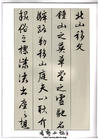 北山移文
鍾山之英草堂之靈馳煙
驛路勒移山庭夫以耿介
拔俗之標瀟灑出塵之想